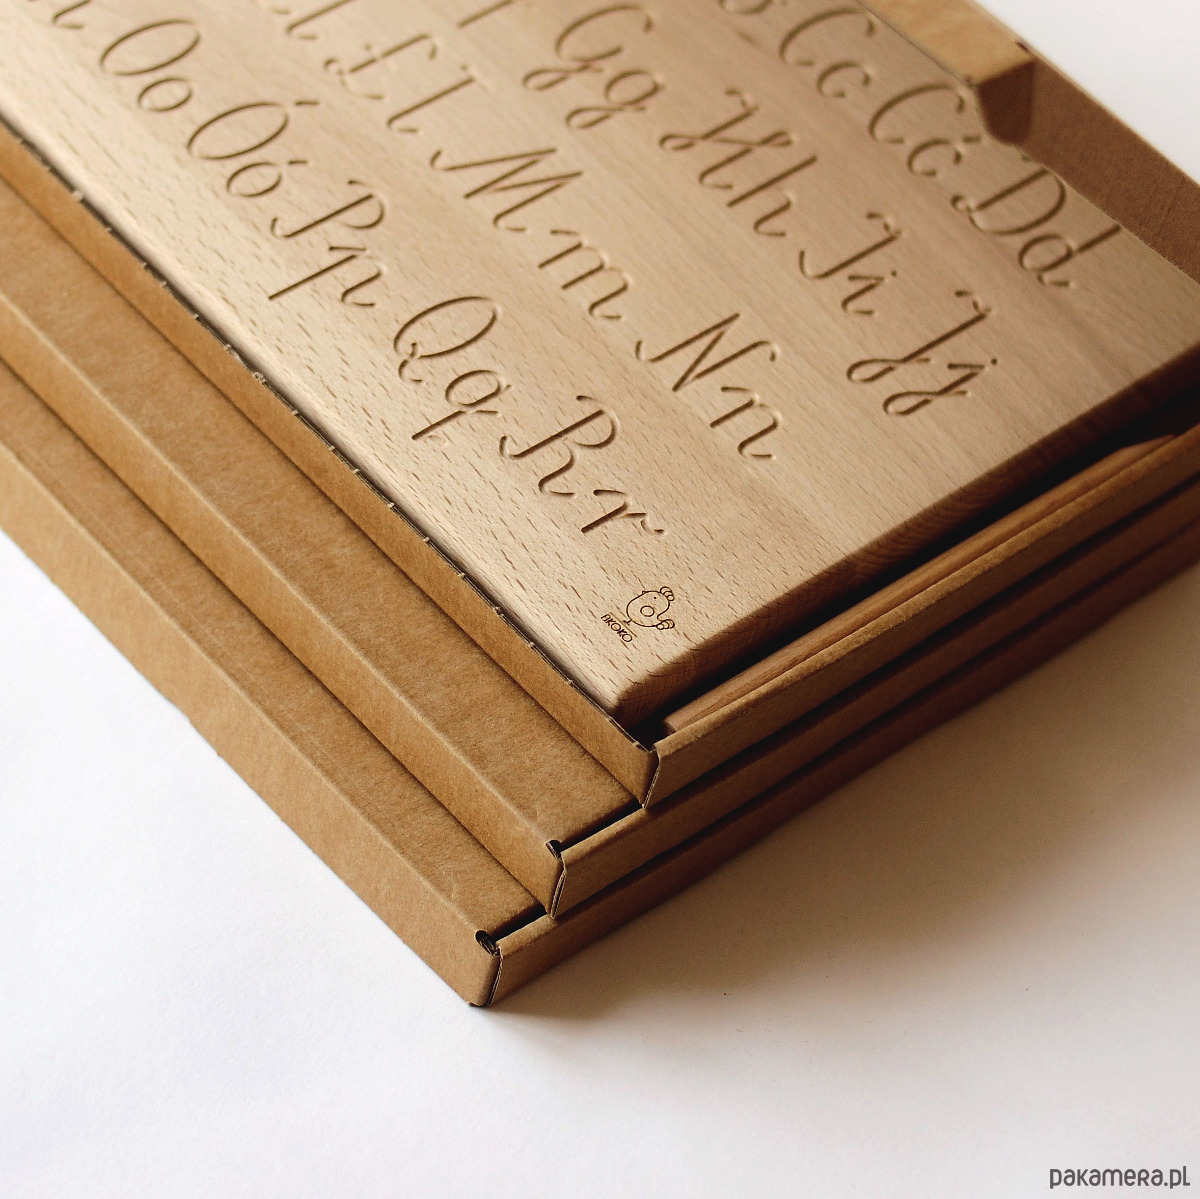 Cc Ćć Dd
Gg Hh Ii Jj
Ł ł Mm Nn
Oo Óó Pp Qq Rr
AKOKO
pakamera.pl